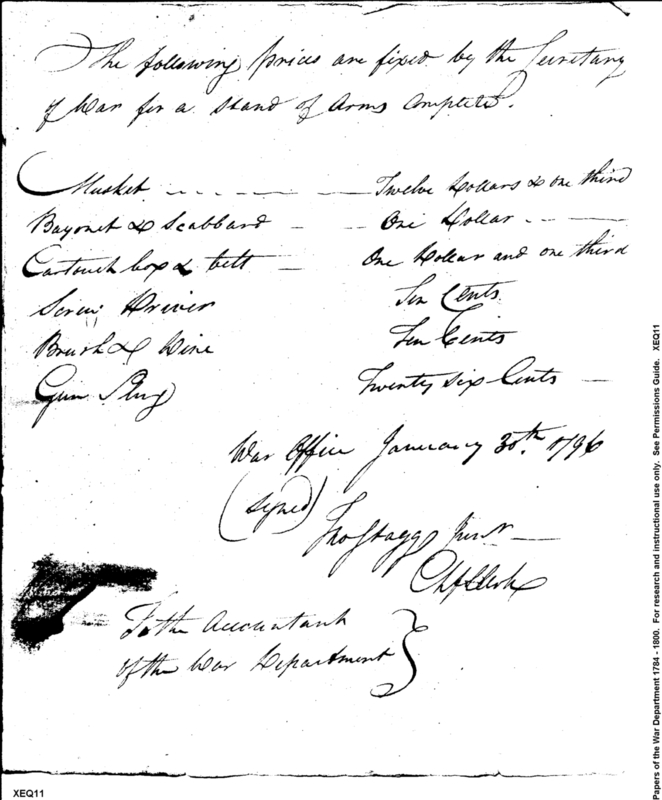 The following prices are fixed by the Secretary
of War for a stand of Arms Complete.
Musket Twelve Dollars & one third
Bayonet & Scabbard One Dollar
Cartouch box & belt One Dollar and one third
Screw Driver Ten Cents
Brush & Wire Ten Cents
Gun Slug Twenty six Cents
War Office January 30th. 1796
(signed)
Jno Stagg Junr
Chf Clerk
To the Accountant
of the War Department
XEQ11
Papers of the War Department 1784 - 1800. For research and instructional use only. See Permissions Guide. XEQ11